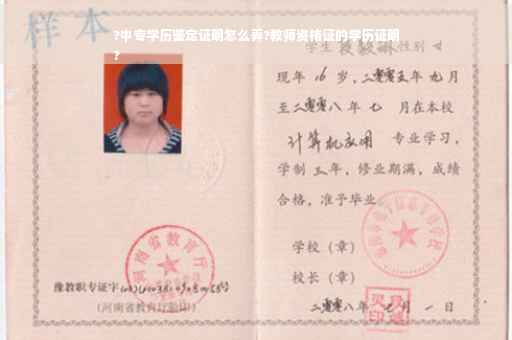 样本
?中专学历鉴定证明怎么弄?教师资格证的学历证明
?
学生 性别 女
现年 16 岁，二零零五年 九月
至二零零八年 七 月在本校
计算机应用 专业学习，
学制 三 年，修业期满，成绩
合格，准予毕业。
学校（章）
校长（章）
二零零八年 七 月 一 日
河南省教育厅
豫教职专证字
（河南省教育厅验印）